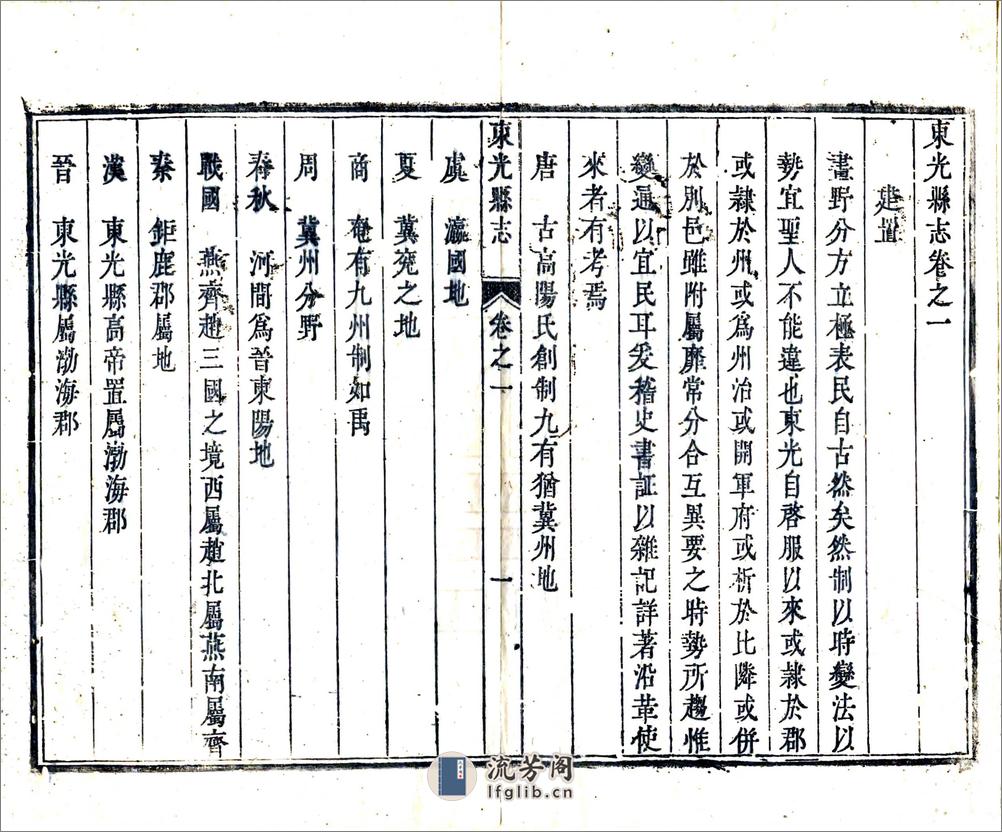 東光縣志卷之一
建置
畫野分方立極表民自古然矣然制以時變法以
勢宜聖人不能違也東光自啓服以來或隸於郡
或隸於州或爲州治或開軍府或析於比隣或併
於別邑雖附屬靡常分合互異要之時勢所趨惟
變通以宜民耳爰稽史書証以雜記詳著沿革使
來者有考焉
唐 古高陽氏創制九有猶冀州地
東光縣志 卷之一 一
虞 瀛國地
夏 冀兗之地
商 奄有九州制如禹
周 冀州分野
春秋 河間爲晉東陽地
戰國 燕齊趙三國之境西屬趙北屬燕南屬齊
秦 鉅鹿郡屬地
漢 東光縣高帝置屬渤海郡
晉 東光縣屬渤海郡
流芳阁
lfglib.cn